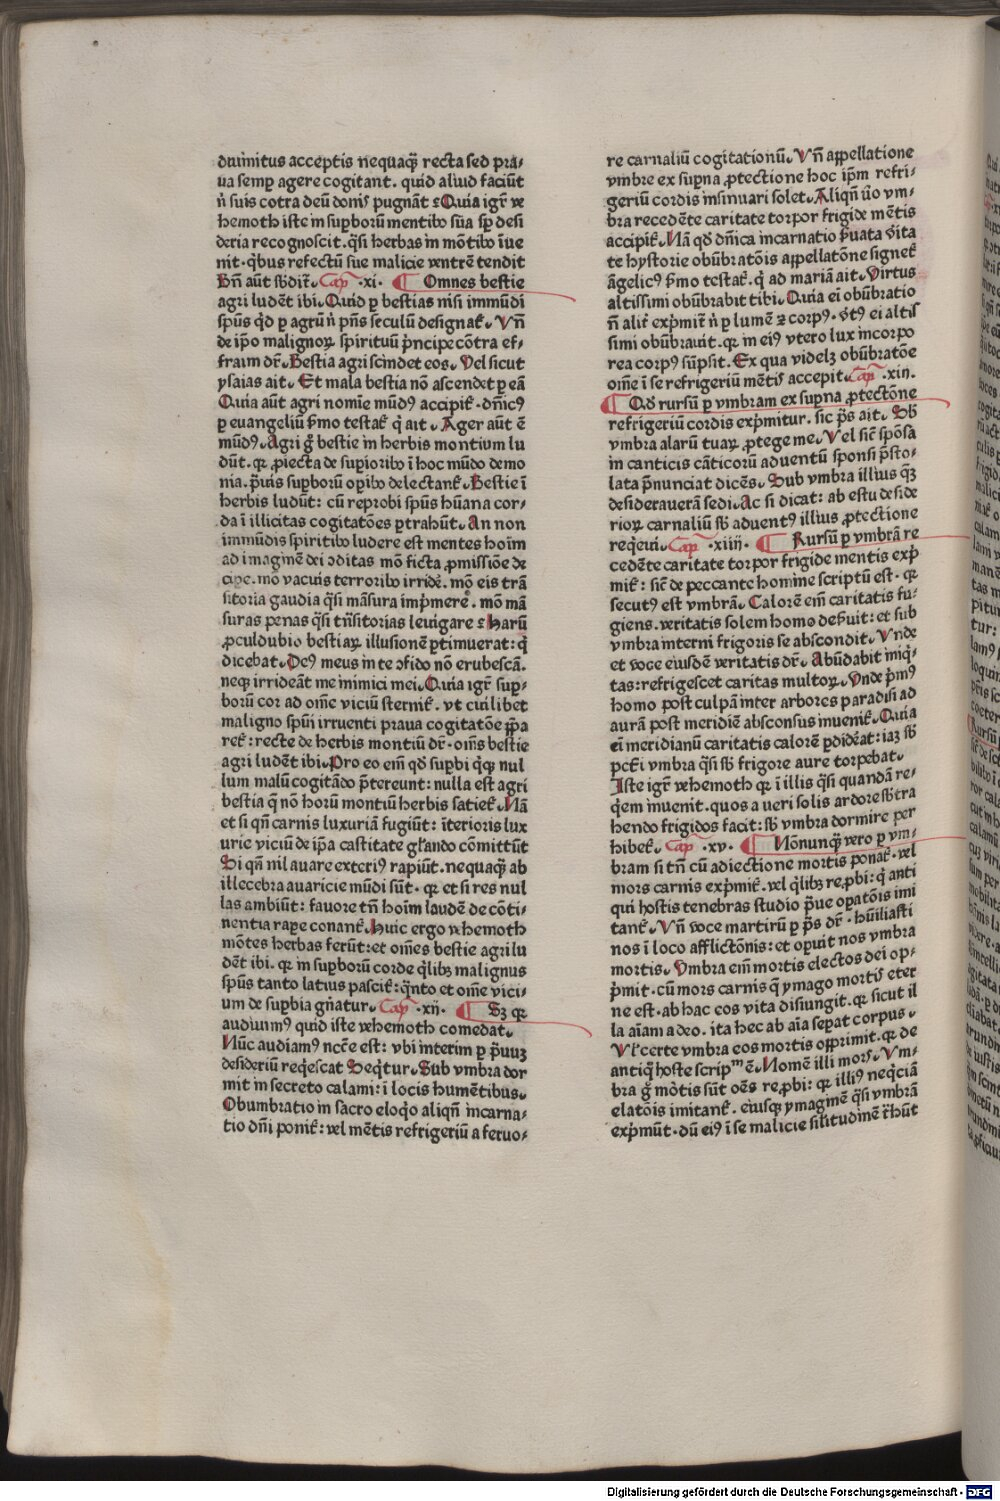 diuinitus acceptis nequaq̃ recta sed pra⸗
ua semp̱ agere cogitant. quid aliud faciũt
ñ suis cõtra deũ donis pugnãt? Quia igr̃ ve
hemoth iste in sup̱borũ mentibꝰ sua sp̱ desi
deria recognoscit. q̃si herbas in mõtibꝰ ĩue
nit. qͥbus refectũ sue malicie ventrẽ tendit
Bñ aũt sb̃dit̃. Cap̃ .xi. ¶ Omnes bestie
agri ludẽt ibi. Quid p̱ bestias nisi immũdi
sp̃us qͥd p̱ agrũ ñ p̃ns seculũ designat̃. Vñ
de ip̃o malignoꝝ spirituũ p̃ncipe cõtra ef⸗
fraim dr̃. Bestia agri scindet eos. Vel sicut
ysaias ait. Et mala bestia nõ ascendet p̱ eã
Quia aũt agri nomĩe mũdꝰ accipit̃. dñicꝰ
p̱ euangeliũ s̃mo testat̃ q̃ ait. Ager aũt ẽ
mũdꝰ. Agri g̃ bestie in herbis montium lu
dũt. qꝛ ꝓiecta de sup̱ioribꝰ ĩ hoc mũdo demo
nia. p̃uis sup̱borũ op̱ibꝰ delectant̃. Bestie ĩ
herbis ludũt: cũ reprobi sp̃us hũana cor⸗
da ĩ illicitas cogitatões p̱trahũt. An non
immũdis spiritibꝰ ludere est mentes hoĩm
ad imaginẽ dei ꝯditas mõ ficta ꝓmissiõe de
cipe. mõ vacuis terroribꝰ irridẽ. mõ eis trã
sitoria gaudia q̃si mãsura imp̃mere. mõ mã
suras penas q̃si trñsitorias leuigare? Harũ
ꝓculdubio bestiaꝝ illusionẽ p̱timuerat: q̃
dicebat. Deꝰ meus in te ꝯfido nõ erubescã.
neqꝫ irrideãt me inimici mei. Quia igr̃ sup̱⸗
borũ cor ad om̃e viciũ sternit̃. vt cuilibet
maligno sp̃ui irruenti praua cogitatõe p̱pa
ret̃: recte de herbis montiũ dr̃. om̃s bestie
agri ludẽt ibi. Pro eo em̃ qd̃ sup̱bi q̃qꝫ nul
lum malũ cogitãdo p̃tereunt: nulla est agri
bestia q̃ nõ horũ montiũ herbis satiet̃. Nã
et si qñ carnis luxuriã fugiũt: ĩterioris lux
urie viciũ de ip̃a castitate gl̃ando cõmittũt
Si qñ nil auare exteriꝰ rapiũt. nequaq̃ ab
illecebra auaricie mũdi sũt. qꝛ et si res nul
las ambiũt: fauore tñ hoĩm laudẽ de cõti⸗
nentia rape conant̃. Huic ergo vehemoth
mõtes herbas ferũt: et om̃es bestie agri lu
dẽt ibi. qꝛ in sup̱borũ corde q̃libꝫ malignus
sp̃us tanto latius pascit̃: q̃nto et om̃e vici⸗
um de sup̱bia gñatur. Cap̃ .xij. ¶ Sꝫ qꝛ
audiuimꝰ quid iste vehemoth comedat.
Nũc audiamꝰ nccẽ est: vbi interim p̱ p̃uuꝫ
desideriũ reqͥescat Seqͥtur. Sub vmbra dor
mit in secreto calami: ĩ locis humẽtibus.
Obumbratio in sacro eloqͦo aliqñ incarna⸗
tio dñi ponit̃: vel mẽtis refrigeriũ a feruo⸗
re carnaliũ cogitationũ. Vñ appellatione
vmbre ex sup̱na ꝓtectione hoc ip̃m refri⸗
geriũ cordis insinuari solet. Aliqñ ũo vm⸗
bra recedẽte caritate torpor frigide mẽtis
accipit̃. Nã qd̃ dñica incarnatio s̃uata ṽita
te hystorie obũbratõis appellatõne signet̃
ãgelicꝰ s̃mo testat̃. q̃ ad mariã ait. Virtus
altissimi obũbrabit tibi. Quia ei obũbratio
ñ alit̃ exp̃mit̃ ñ p̱ lumẽ ⁊ corpꝰ. ṽtꝰ ei altis
simi obũbrauit. qꝛ in eiꝰ vtero lux incorpo
rea corpꝰ sũpsit. Ex qua videlꝫ obũbratõe
om̃e ĩ se refrigeriũ mẽtis accepit. Cap̃ .xiij.
¶ Qd̃ rursũ p̱ vmbram ex sup̱na ꝓtectõne
refrigeriũ cordis exp̃mitur. sic p̃s ait. Sb̃
vmbra alarũ tuaꝝ ꝓtege me. Vel sic̃ spõsa
in canticis cãticorũ aduentũ sponsi p̃sto⸗
lata p̃nunciat dicẽs. Sub vmbra illius q̃ꝫ
desideraueram sedi. Ac si dicat: ab estu deside
rioꝝ carnaliũ sb̃ aduentꝰ illius ꝓtectione
reqͥeui. Cap̃ .xiiij. ¶ Rursũ p̱ vmbrã re
cedẽte caritate torpor frigide mentis exp̃
mit̃: sic̃ de peccante homine scriptũ est. qꝛ
secutꝰ est vmbrã. Calorẽ em̃ caritatis fu⸗
giens. veritatis solem homo des̃uit: et sub
vmbra interni frigoris se abscondit. Vnde
et voce eiusdẽ veritatis dr̃. Abũdabit iniqͥ⸗
tas: refrigescet caritas multoꝝ. Vnde p̃mꝰ
homo post culpã inter arbores paradisi ad
aurã post meridiẽ absconsus inuenit̃. Quia
ei meridianũ caritatis calorẽ p̱dideãt: iaꝫ sb̃
pct̃i vmbra q̃si sb̃ frigore aure torpebat.
Iste igr̃ vehemoth qꝛ ĩ illis q̃si quandã re⸗
qͥem inuenit. quos a ueri solis ardore sb̃tra
hendo frigidos facit: sb̃ vmbra dormire per
hibet̃. Cap̃ .xv. ¶ Nõnunq̃ vero p̱ vm⸗
bram si tñ cũ adiectione mortis ponat̃. vel
mors carnis exp̃mit̃. vel q̃libꝫ rep̱bi: q̃ anti
qui hostis tenebras studio p̃ue op̱atõis imi
tant̃. Vñ voce martirũ p̱ p̃s dr̃. hũiliasti
nos ĩ loco afflictõnis: et op̱uit nos vmbra
mortis. Vmbra em̃ mortis electos dei op⸗
p̃mit. cũ mors carnis q̃ ymago mortis eter
ne est. ab hac eos vita disiungit. qꝛ sicut il
la aĩam a deo. ita hec ab aĩa sep̱at corpus.
Vl̃ certe vmbra eos mortis opprimit. qꝛ de
antiqͦ hoste scrip̱ᵐ ẽ. Nomẽ illi mors. Vm⸗
bra g̃ mõtis sũt oẽs rep̱bi: qꝛ illiꝰ neqͥciã
elatõis imitant̃. eiusqꝫ ymaginẽ q̃si vmbrã
exp̃mũt. dũ eiꝰ ĩ se malicie sil̃itudinẽ tr̃hũt
Digitalisierung gefördert durch die Deutsche Forschungsgemeinschaft - DFG